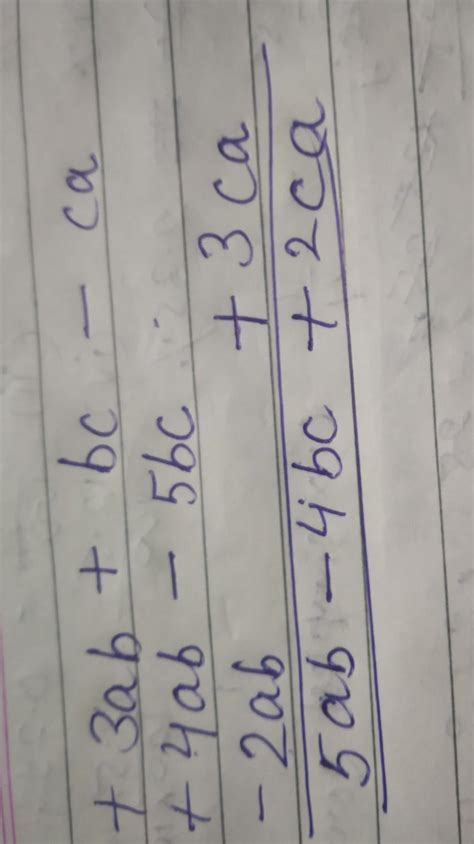 + 3ab + bc - ca
+ 4ab - 5bc
- 2ab + 3ca
5ab - 4bc + 2ca